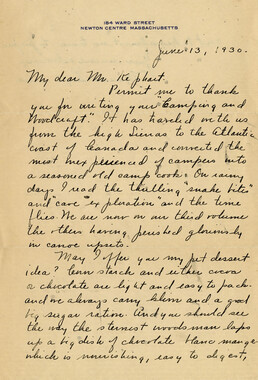 184 WARD STREET
NEWTON CENTRE MASSACHUSETTS
June 13, 1930.
My dear Mr. Kephart.
Permit me to thank
you for writing your "Camping and
Woodcraft". It has traveled with us
from the high Sierras to the Atlantic
coast of Canada and converted the
most inexperienced of campers into
a seasoned old camp cook. On rainy
days I read the thrilling "snake bite"
and "cave exploration" and the time
flies. We are now on our third volume
the others having perished gloriously
in canoe upsets.
May I offer you my pet dessert
idea? Corn starch and either cocoa
or chocolate are light and easy to pack.
and we always carry them and a good
big sugar ration. And you should see
the way the sternest woodsman laps
up a big dish of chocolate blanc mange
which is nourishing, easy to digest,